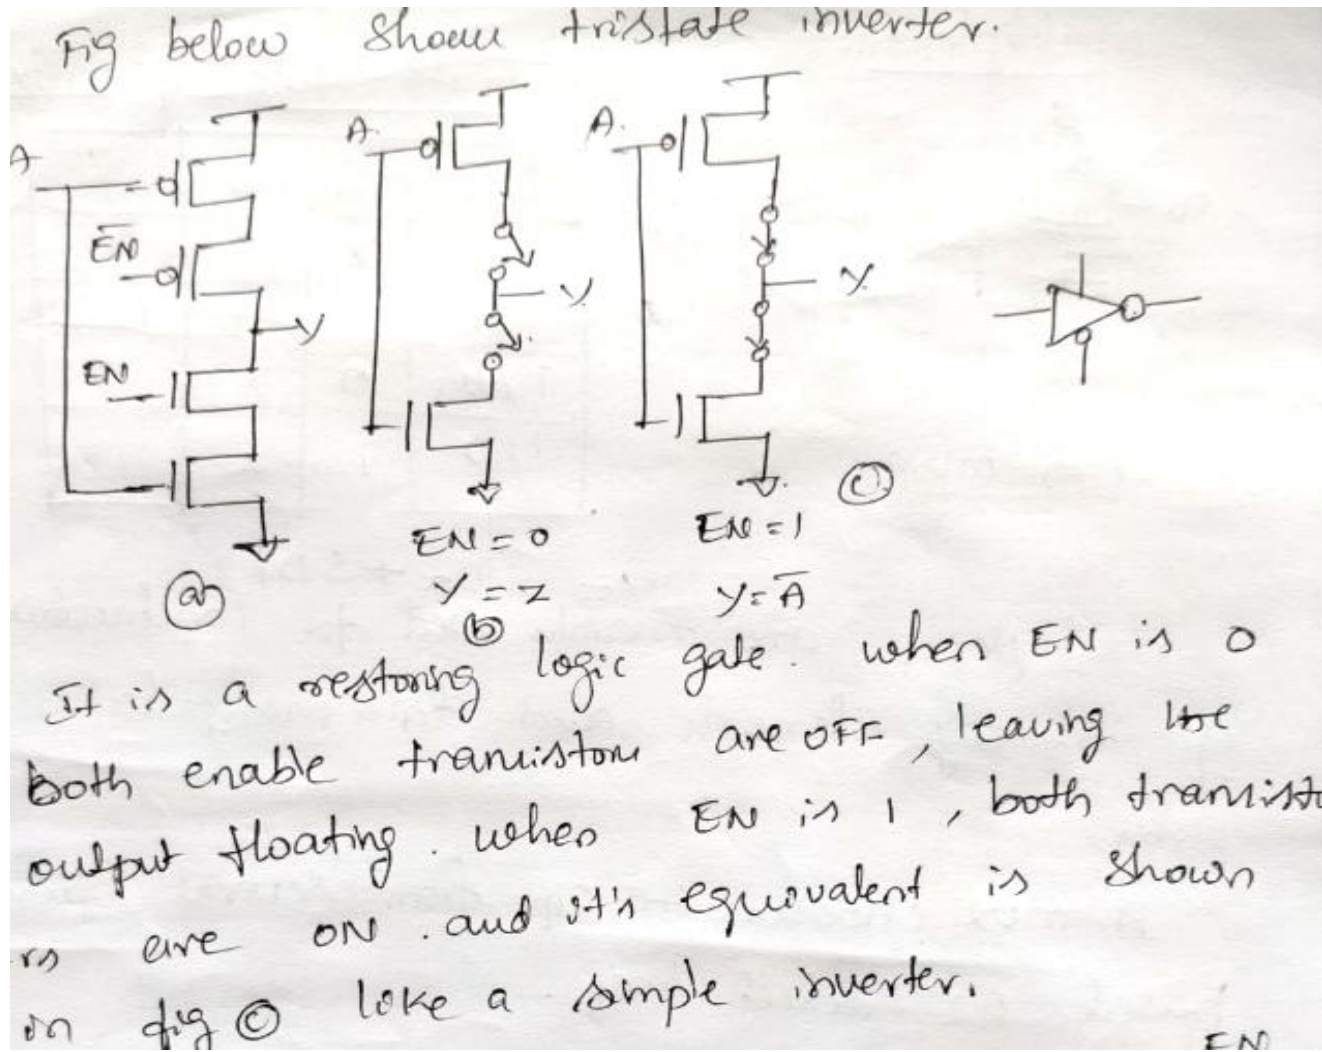 Fig below shown tristate inverter.
A A. A.
E̅N̅
Y Y Y
EN
ⓒ
EN = 0 EN = 1
ⓐ Y = Z Y = A̅
ⓑ
It is a restoring logic gate. when EN is 0
both enable transistors are OFF, leaving the
output floating. when EN is 1, both transisto
rs are ON. and it's equivalent is shown
in fig ⓒ like a simple inverter.
EN